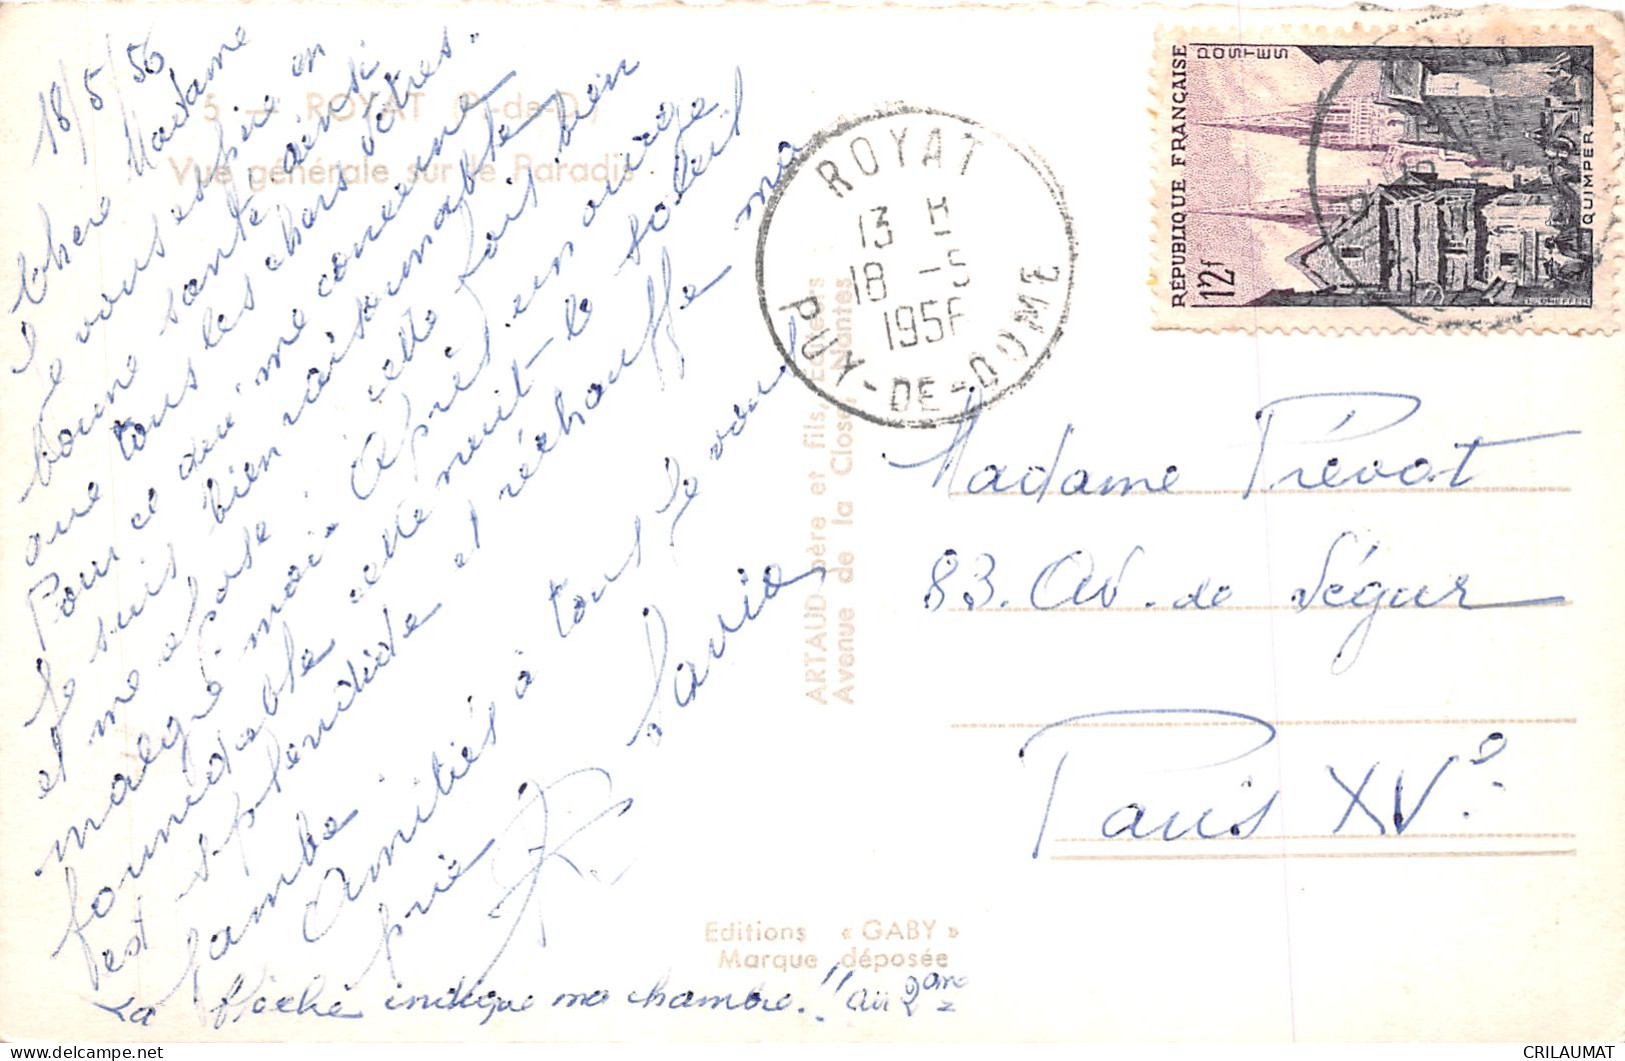 18/5/56
Chère Madame
Je vous espère en
bonne santé ainsi
que tous les chers vôtres.
Pour ce qui me concerne
je suis bien raisonnable
et me repose. Cette fois bien
malgré moi. Après un orage
formidable cette nuit le soleil
est splendide et réchauffe ma
jambe
Amitiés à tous je vous
prie
Maria
La flèche indique ma chambre!! au 2ème
5 — ROYAT (P.-de-D.)
Vue générale sur le Paradis
ARTAUD père et fils, Editeurs
Avenue de la Close, Nantes
Editions « GABY »
Marque déposée
ROYAT
13 H
18 -5
1956
PUY-DE-DOME
RÉPUBLIQUE FRANÇAISE
POSTES
12f
QUIMPER
Madame Prévost
83. Av. de Ségur
Paris XVe
CRILAUMAT